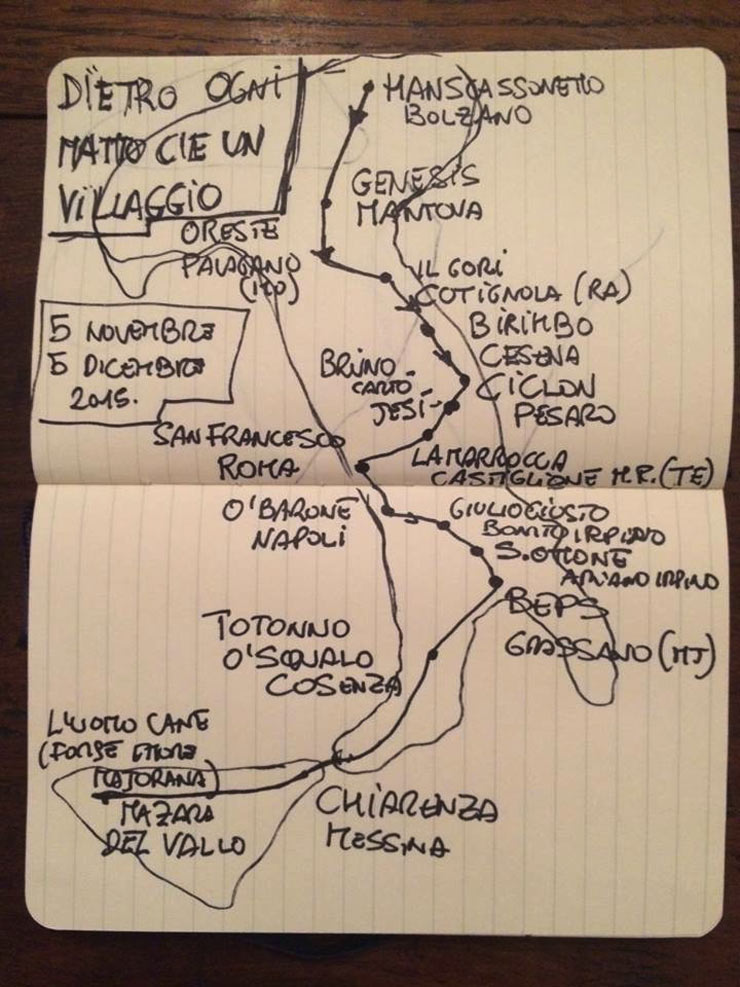 DIETRO OGNI
MATTO C'IE UN
VILLAGGIO
HANSCASSONETTO
BOLZANO
GENESIS
MANTOVA
ORESTE
PALAGANO
(MO)
IL GORI
COTIGNOLA (RA)
BIRIMBO
CESENA
5 NOVEMBRE
5 DICEMBRE
2015.
BRUNO
CARTO
JESI
CICLON
PESARO
SAN FRANCESCO
ROMA
LA MARROCCA
CASTIGLIONE M.R. (TE)
O'BARONE
NAPOLI
GIULIOGIUSTO
BONITO IRPINO
S. OTTONE
ARIANO IRPINO
BEPS
GRASSANO (MT)
TOTONNO
O'SQUALO
COSENZA
L'UOMO CANE
(FORSE ETTORE
MAJORANA)
MAZARA
DEL VALLO
CHIARENZA
MESSINA